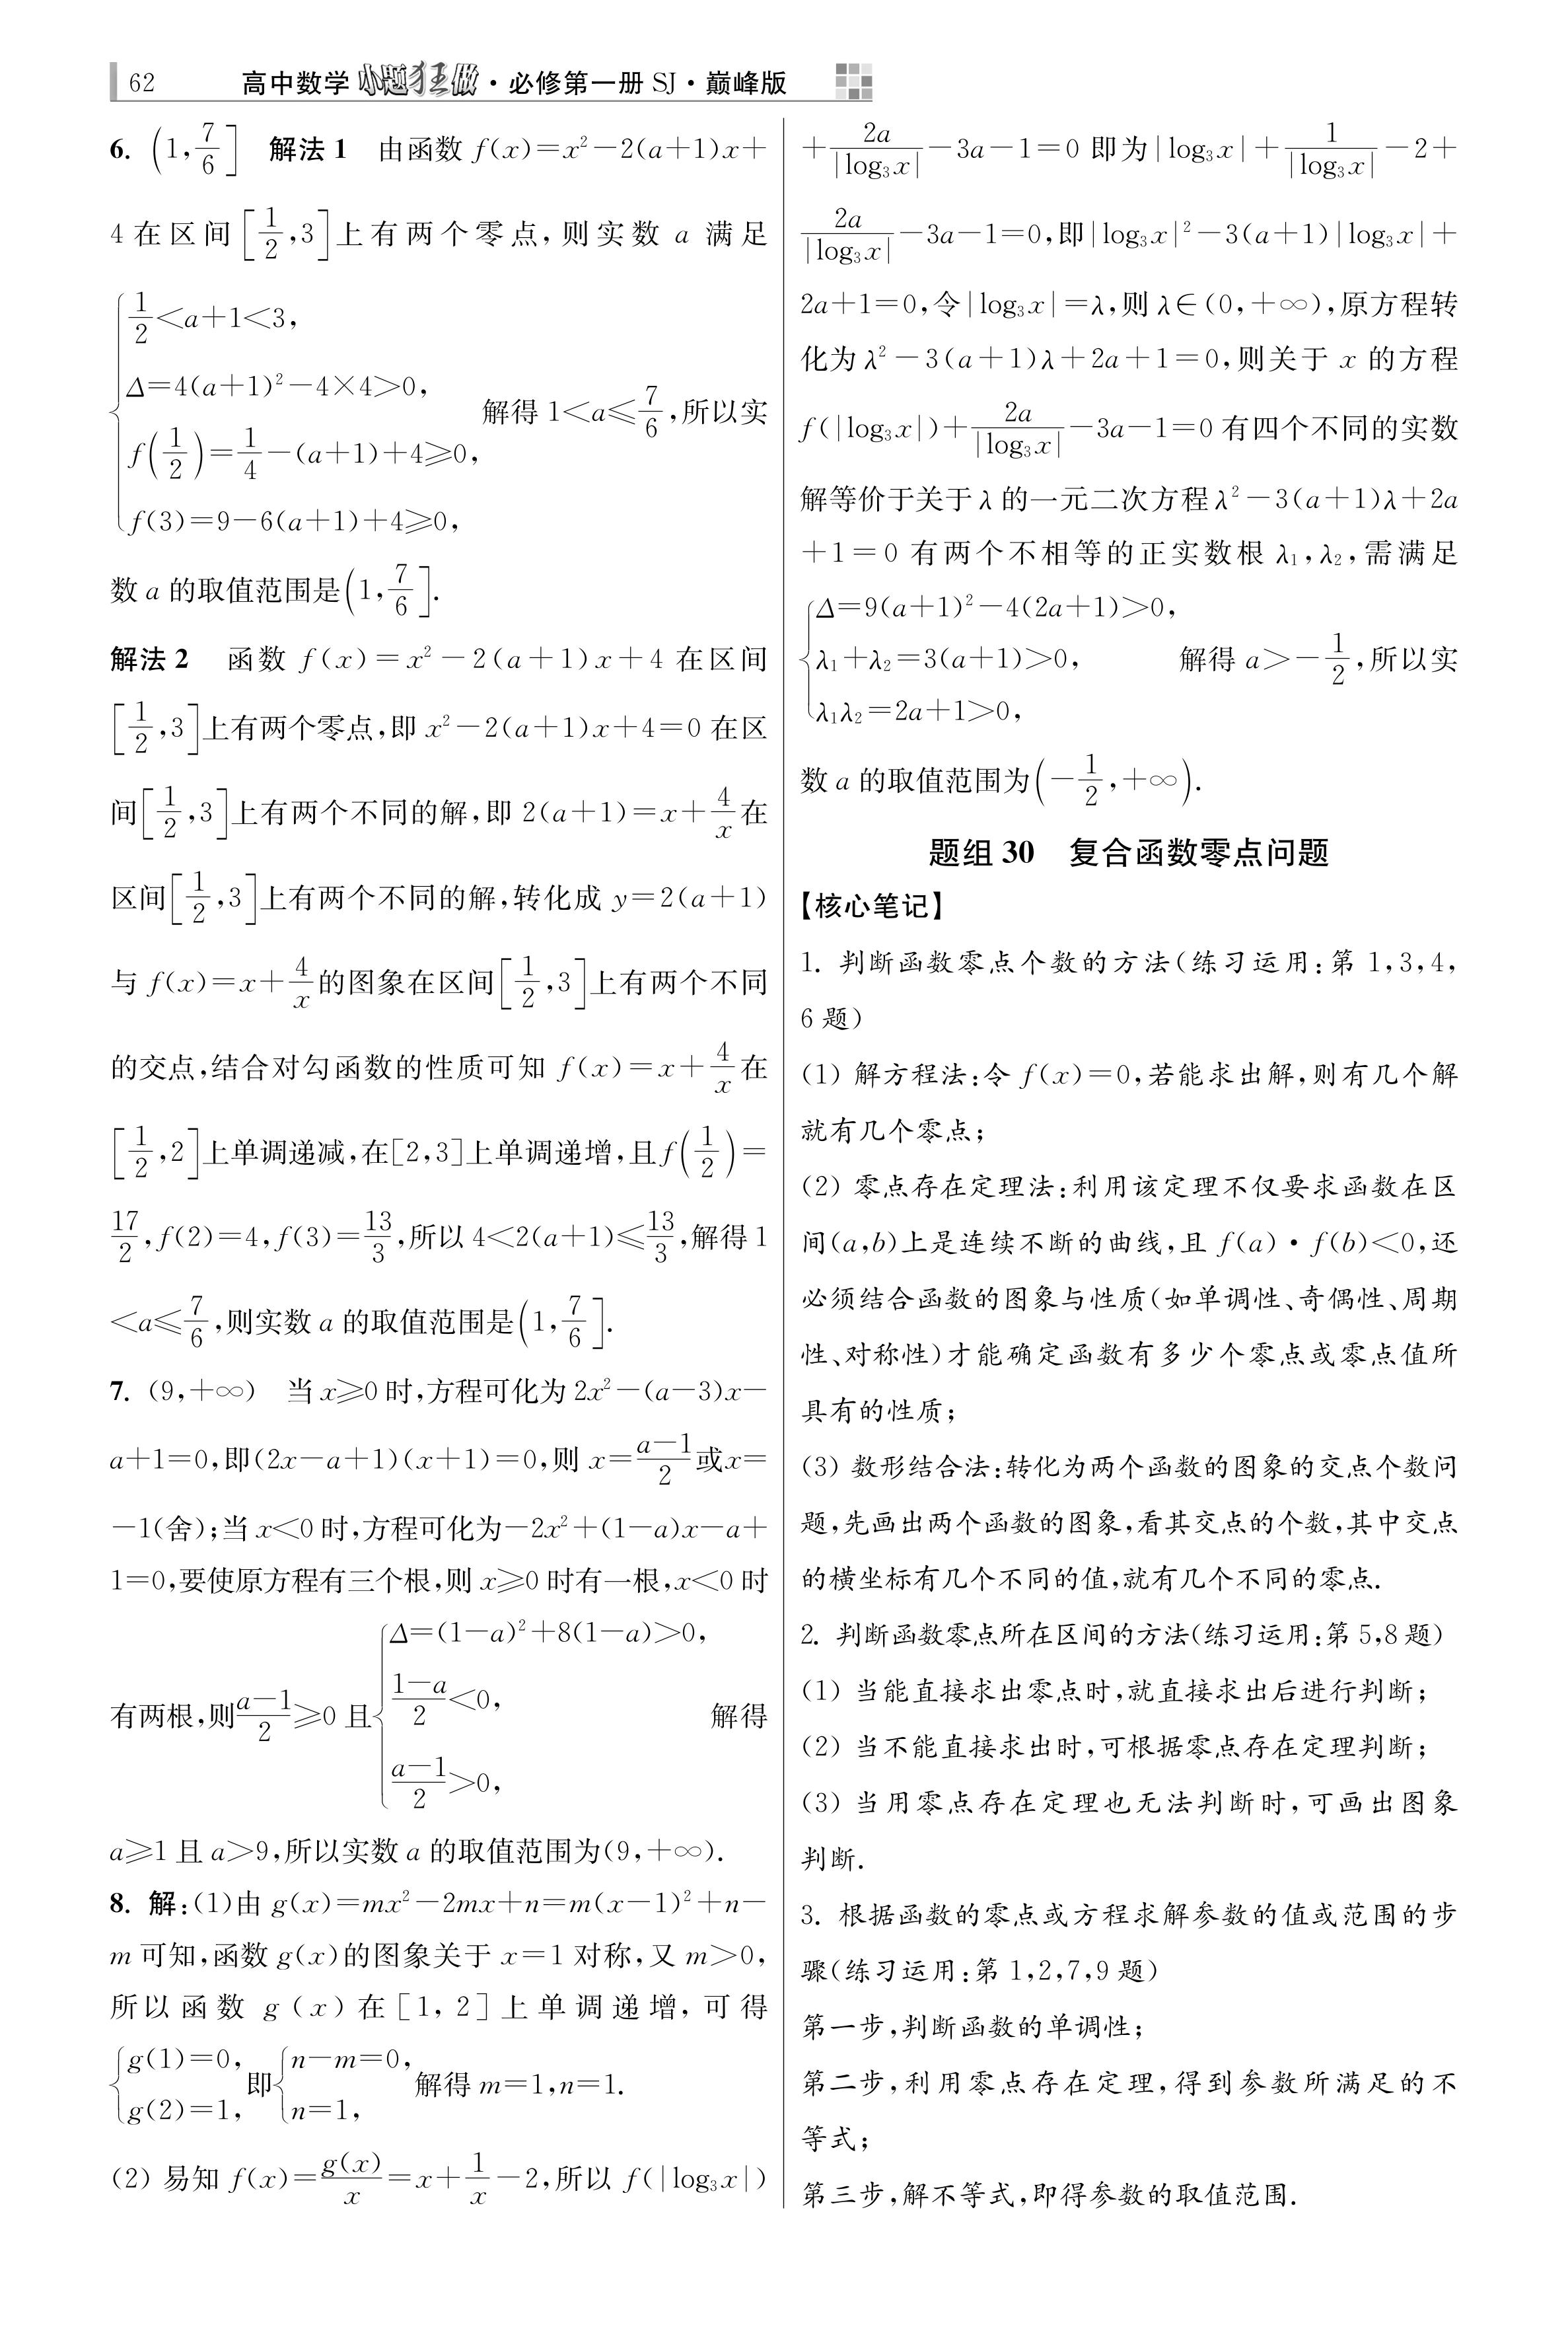 62 高中数学小题狂做·必修第一册 SJ·巅峰版
6. (1,7/6] 解法1 由函数 f(x)=x²-2(a+1)x+
4在区间[1/2,3]上有两个零点,则实数 a 满足
{1/2<a+1<3,
Δ=4(a+1)²-4×4>0,
f(1/2)=1/4-(a+1)+4≥0,
f(3)=9-6(a+1)+4≥0,
解得 1<a≤7/6,所以实
数 a 的取值范围是(1,7/6].
解法2 函数 f(x)=x²-2(a+1)x+4 在区间
[1/2,3]上有两个零点,即 x²-2(a+1)x+4=0 在区
间[1/2,3]上有两个不同的解,即 2(a+1)=x+4/x在
区间[1/2,3]上有两个不同的解,转化成 y=2(a+1)
与 f(x)=x+4/x的图象在区间[1/2,3]上有两个不同
的交点,结合对勾函数的性质可知 f(x)=x+4/x在
[1/2,2]上单调递减,在[2,3]上单调递增,且f(1/2)=
17/2,f(2)=4,f(3)=13/3,所以 4<2(a+1)≤13/3,解得 1
<a≤7/6,则实数 a 的取值范围是(1,7/6].
7. (9,+∞) 当 x≥0 时,方程可化为 2x²-(a-3)x-
a+1=0,即(2x-a+1)(x+1)=0,则 x=(a-1)/2或x=
-1(舍);当 x<0 时,方程可化为-2x²+(1-a)x-a+
1=0,要使原方程有三个根,则 x≥0 时有一根,x<0 时
有两根,则(a-1)/2≥0 且{Δ=(1-a)²+8(1-a)>0,
(1-a)/2<0,
(a-1)/2>0,
解得
a≥1 且 a>9,所以实数 a 的取值范围为(9,+∞).
8. 解:(1)由 g(x)=mx²-2mx+n=m(x-1)²+n-
m 可知,函数 g(x)的图象关于 x=1 对称,又 m>0,
所以函数 g(x)在[1,2]上单调递增,可得
{g(1)=0,
g(2)=1,
即{n-m=0,
n=1,
解得 m=1,n=1.
(2) 易知 f(x)=g(x)/x=x+1/x-2,所以 f(|log₃x|)
+2a/|log₃x|-3a-1=0 即为|log₃x|+1/|log₃x|-2+
2a/|log₃x|-3a-1=0,即|log₃x|²-3(a+1)|log₃x|+
2a+1=0,令|log₃x|=λ,则 λ∈(0,+∞),原方程转
化为 λ²-3(a+1)λ+2a+1=0,则关于 x 的方程
f(|log₃x|)+2a/|log₃x|-3a-1=0 有四个不同的实数
解等价于关于 λ 的一元二次方程 λ²-3(a+1)λ+2a
+1=0 有两个不相等的正实数根 λ₁,λ₂,需满足
{Δ=9(a+1)²-4(2a+1)>0,
λ₁+λ₂=3(a+1)>0,
λ₁λ₂=2a+1>0,
解得 a>-1/2,所以实
数 a 的取值范围为(-1/2,+∞).
题组 30 复合函数零点问题
【核心笔记】
1. 判断函数零点个数的方法(练习运用:第 1,3,4,
6 题)
(1) 解方程法:令 f(x)=0,若能求出解,则有几个解
就有几个零点;
(2) 零点存在定理法:利用该定理不仅要求函数在区
间(a,b)上是连续不断的曲线,且 f(a)·f(b)<0,还
必须结合函数的图象与性质(如单调性、奇偶性、周期
性、对称性)才能确定函数有多少个零点或零点值所
具有的性质;
(3) 数形结合法:转化为两个函数的图象的交点个数问
题,先画出两个函数的图象,看其交点的个数,其中交点
的横坐标有几个不同的值,就有几个不同的零点.
2. 判断函数零点所在区间的方法(练习运用:第 5,8 题)
(1) 当能直接求出零点时,就直接求出后进行判断;
(2) 当不能直接求出时,可根据零点存在定理判断;
(3) 当用零点存在定理也无法判断时,可画出图象
判断.
3. 根据函数的零点或方程求解参数的值或范围的步
骤(练习运用:第 1,2,7,9 题)
第一步,判断函数的单调性;
第二步,利用零点存在定理,得到参数所满足的不
等式;
第三步,解不等式,即得参数的取值范围.